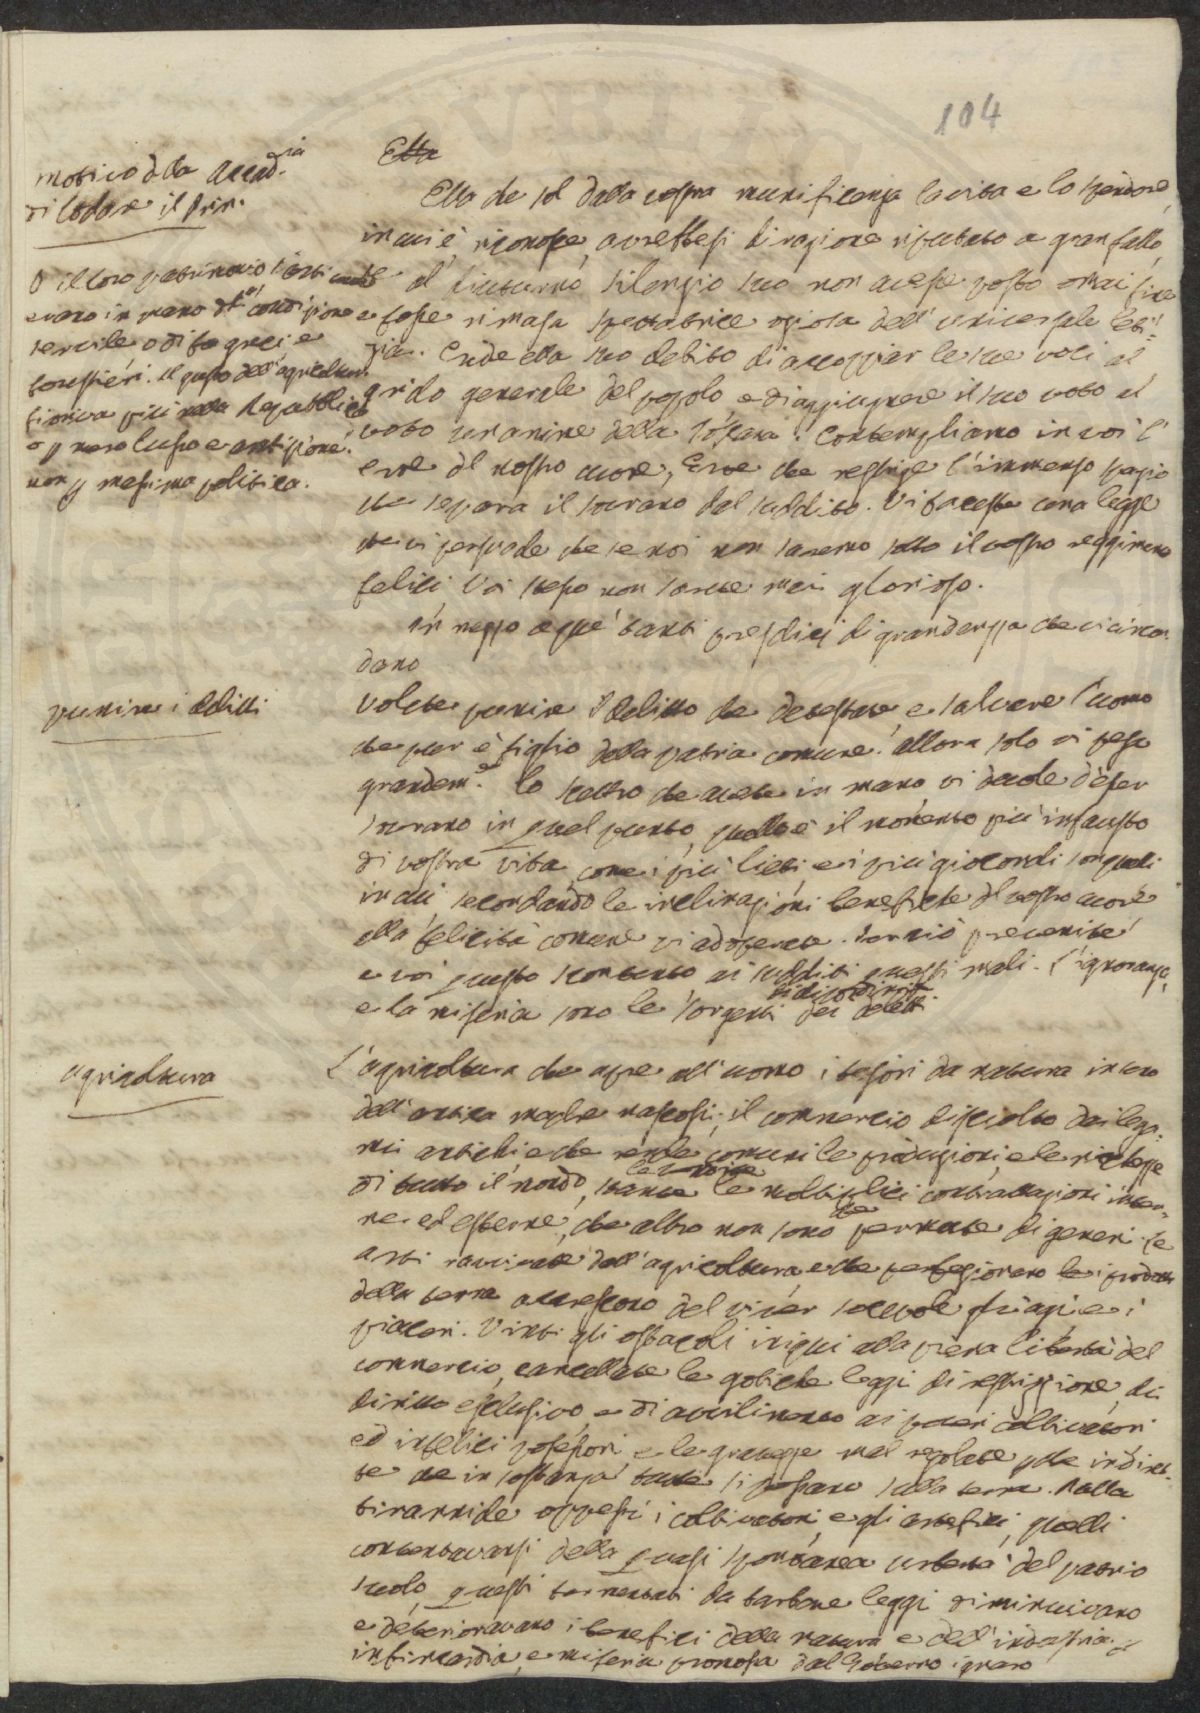 104
Motivo della Accad.ia
di lodare il Prin.
O il loro patrimonio l'arti
erano in mano di condizione
servile o di fa greci e
forestieri. Il gusto dell'agricoltura
fioriva più nella Repubblica
o p naso lusso e ambizione.
non p massima politica.
Ella
Ella che sol dalla vostra munificenza la vita e lo splendore
in cui è, riconosce, avrebbesi di ragione riputato a gran fallo,
se al diuturno silenzio suo non avesse posto omai fine
e fosse rimasa spettatrice oziosa dell'universale leti-
zia. Crede ella suo debito di accoppiar le sue voci al
grido generale del popolo e di aggiugnere il suo voto al
voto unanime della Toscana. Contempliamo in voi l'
eroe del nostro cuore, Eroe che restringe l'immenso spazio
che separa il sovrano dal suddito. Vi faceste una legge
che vi persuade che se noi non saremo sotto il vostro reggimento
felici Voi stesso non sarete mai glorioso.
In mezzo a que' tanti presidj di grandezza che vi circon-
dano
punire i delitti
Volete punire il delitto che detestate e salvare l'uomo
che pur è figlio della patria comune. allora solo vi pesa
grandem.e lo scettro che avete in mano, vi duole d'esser
sovrano in quel punto, quello è il momento più infausto
di vostra vita, come i più lieti e i più giocondi son quelli
in cui secondando le inclinazioni benefiche del vostro cuore
alla felicità comune vi adoperate. Perciò prevenite
e voi questo scontento ai sudditi questi mali. L'ignoranza,
e la miseria sono le sorgenti dei delitti
agricoltura
L'agricoltura che apre all'uomo i tesori da natura in seno
dell'antica madre nascosti; il commercio disciolto dai lega-
mi antichi e che rende comuni le produzioni, e le ricchezze
di tutto il mondo, le molteplici contrattazioni inter-
ne ed esterne, che altro non sono che permute di generi. le
arti ravvivate dall'agricoltura e che perfezionano i prodotti
della terra accrescono del viver socevole gli agi e i
piaceri. Vinti gli ostacoli iniqui alla piena libertà del
commercio, cancellate le gotiche leggi di restrizzione, di
diritto esclusivo, e di avvilimento ai poveri coltivatori
ed infelici possessori, e le gravezze mal regolate che indiret-
te che in sostanza tutte si posano sulla terra. Dalla
tirannide oppressi i coltivatori, e gli artefici, quelli
contentavansi della quasi spontanea ubertà del patrio
suolo, questi tormentati da barbare leggi diminuivano
e deterioravano i benefici della natura e dell'industria.
infingardia, e miseria promossa dal Governo ignaro